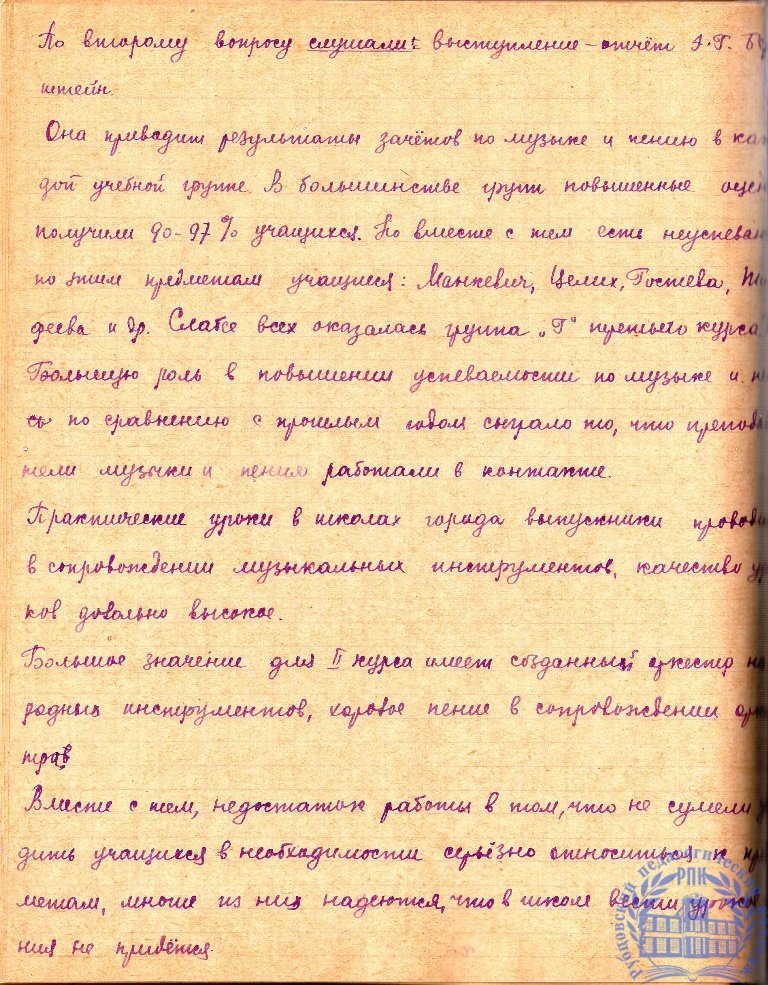 По второму вопросу слушали: выступление – отчёт А.Г. Бу
штейн.
Она приводит результаты зачётов по музыке и пению в каж
дой учебной группе В большинстве групп повышенные оцен
получили 90-97 % учащихся. Но вместе с тем есть неуспеваю
по этим предметам учащиеся: Манкевич, Целих, Гостева, Ти
феева и др. Слабее всех оказалась группа „Г" третьего курса.
Большую роль в повышении успеваемости по музыке и п
сь по сравнению с прошлым годом сыграло то, что препода
тели музыки и пения работали в контакте.
Практические уроки в школах города выпускники проводи
в сопровождении музыкальных инструментов, качество ур
ков довольно высокое.
Большое значение для II курса имеет созданный оркестр на
родных инструментов, хоровое пение в сопровождении орк
тров
Вместе с тем, недостаток работы в том, что не сумели у
дить учащихся в необходимости серьёзно относиться к пр
метам, многие из них надеются, что в школе вести уроков
ния не придётся.
Рубцовский педагогический
РПК